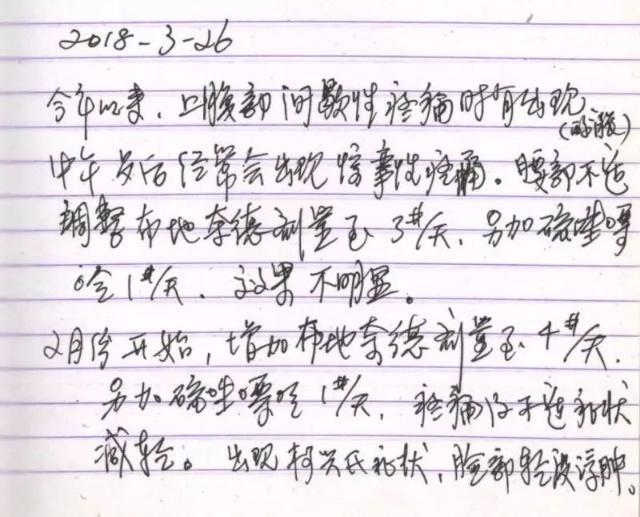 2018-3-26
今年以来,上腹部间歇性疼痛时有出现
中午 后经常会出现痉挛性疼痛。腰部不适
调整布地奈德剂量至3#/天,另加硫唑嘌
呤1#/天,效果不明显。
2月份开始,增加布地奈德剂量至4#/天,
另加硫唑嘌呤1#/天,疼痛及不适症状
减轻。出现柯兴氏症状,脸部轻度浮肿。